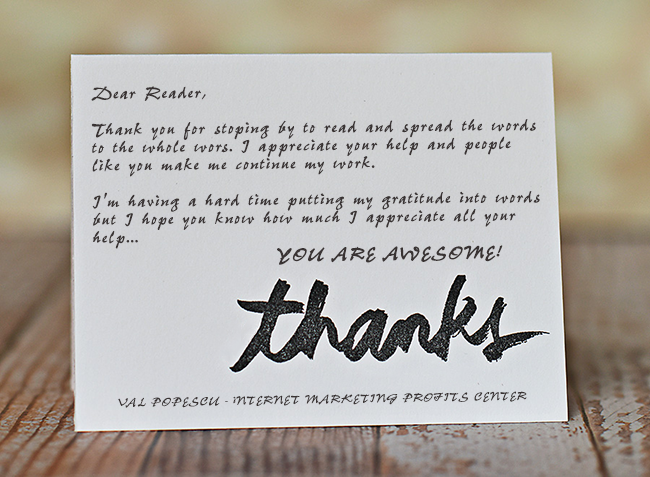 Dear Reader,
Thank you for stoping by to read and spread the words
to the whole wors. I appreciate your help and people
like you make me continue my work.
I'm having a hard time putting my gratitude into words
but I hope you know how much I appreciate all your
help...
YOU ARE AWESOME!
thanks
VAL POPESCU - INTERNET MARKETING PROFITS CENTER